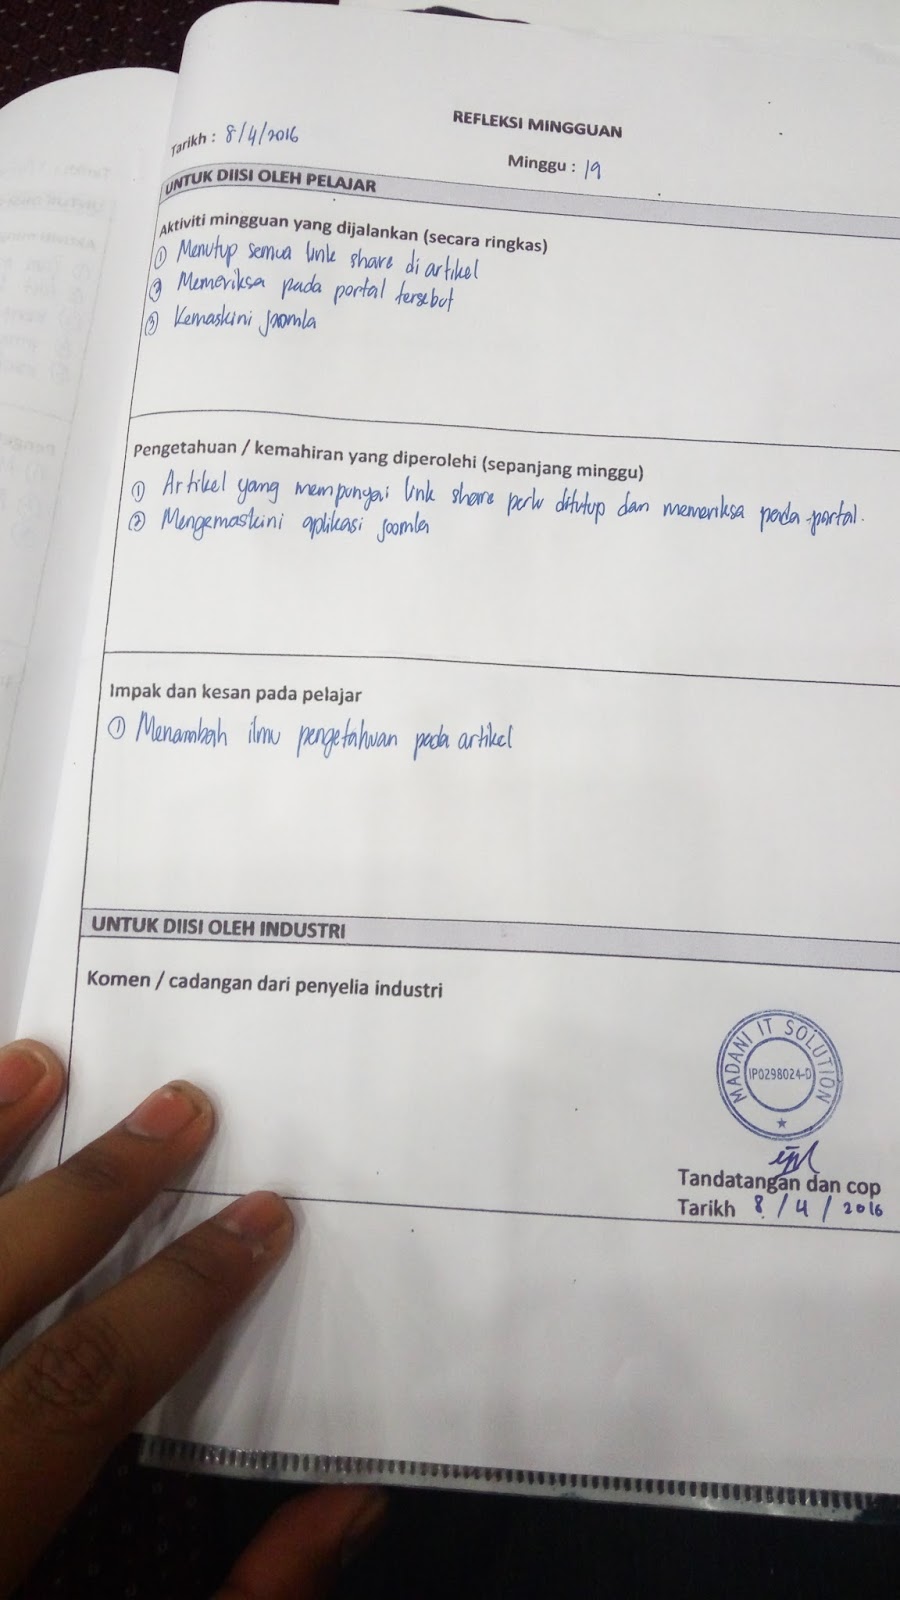 REFLEKSI MINGGUAN
Tarikh : 8/4/2016
Minggu : 19
UNTUK DIISI OLEH PELAJAR
Aktiviti mingguan yang dijalankan (secara ringkas)
① Menutup semua link share di artikel
② Memeriksa pada portal tersebut
③ Kemaskini joomla
Pengetahuan / kemahiran yang diperolehi (sepanjang minggu)
① Artikel yang mempunyai link share perlu ditutup dan memeriksa pada portal.
② Mengemaskini aplikasi joomla
Impak dan kesan pada pelajar
① Menambah ilmu pengetahuan pada artikel
UNTUK DIISI OLEH INDUSTRI
Komen / cadangan dari penyelia industri
MADANI IT SOLUTION
IP0298024-D
Tandatangan dan cop
Tarikh 8/4/2016